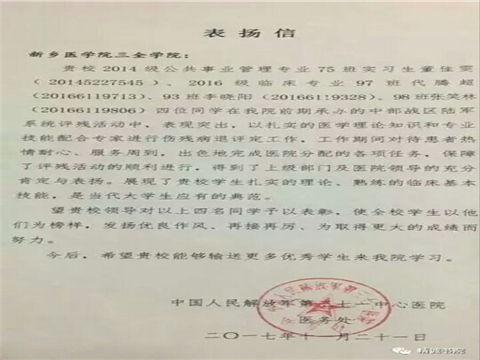 表扬信
新乡医学院三全学院：
贵校2014级公共事业管理专业75班实习生董佳雯
（20145227545）、2016级临床专业97班代腾超
（20166119713）、93班李晓阳（20166119328）、98班张笑林
（20166119806）四位同学在我院前期承办的中部战区陆军
系统评残活动中，表现突出，以扎实的医学理论知识和专业
技能配合专家进行伤残病退评定工作，工作期间对待患者热
情耐心、服务周到，出色地完成医院分配的各项任务，保障
了评残活动的顺利进行，得到了上级部门及医院领导的充分
肯定与表扬。展现了贵校学生扎实的理论、熟练的临床基本
技能，是当代大学生应有的典范。
望贵校领导对以上四名同学予以表彰，使全校学生以他
们为榜样，发扬优良作风、再接再厉、为取得更大的成绩而
努力。
今后，希望贵校能够输送更多优秀学生来我院学习。
中国人民解放军第 七十一中心医院
医务处
二〇一七年十一月二十一日